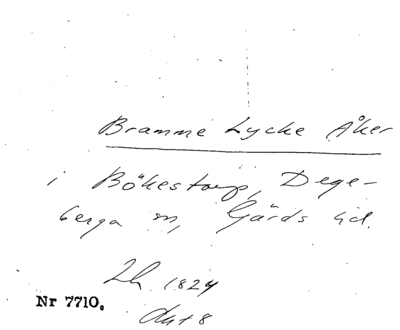 Bramme Lycke Åker
i Bökestorp, Dege-
berga sn, Gärds hd.
Lh 1824
akt 8
Nr 7710.